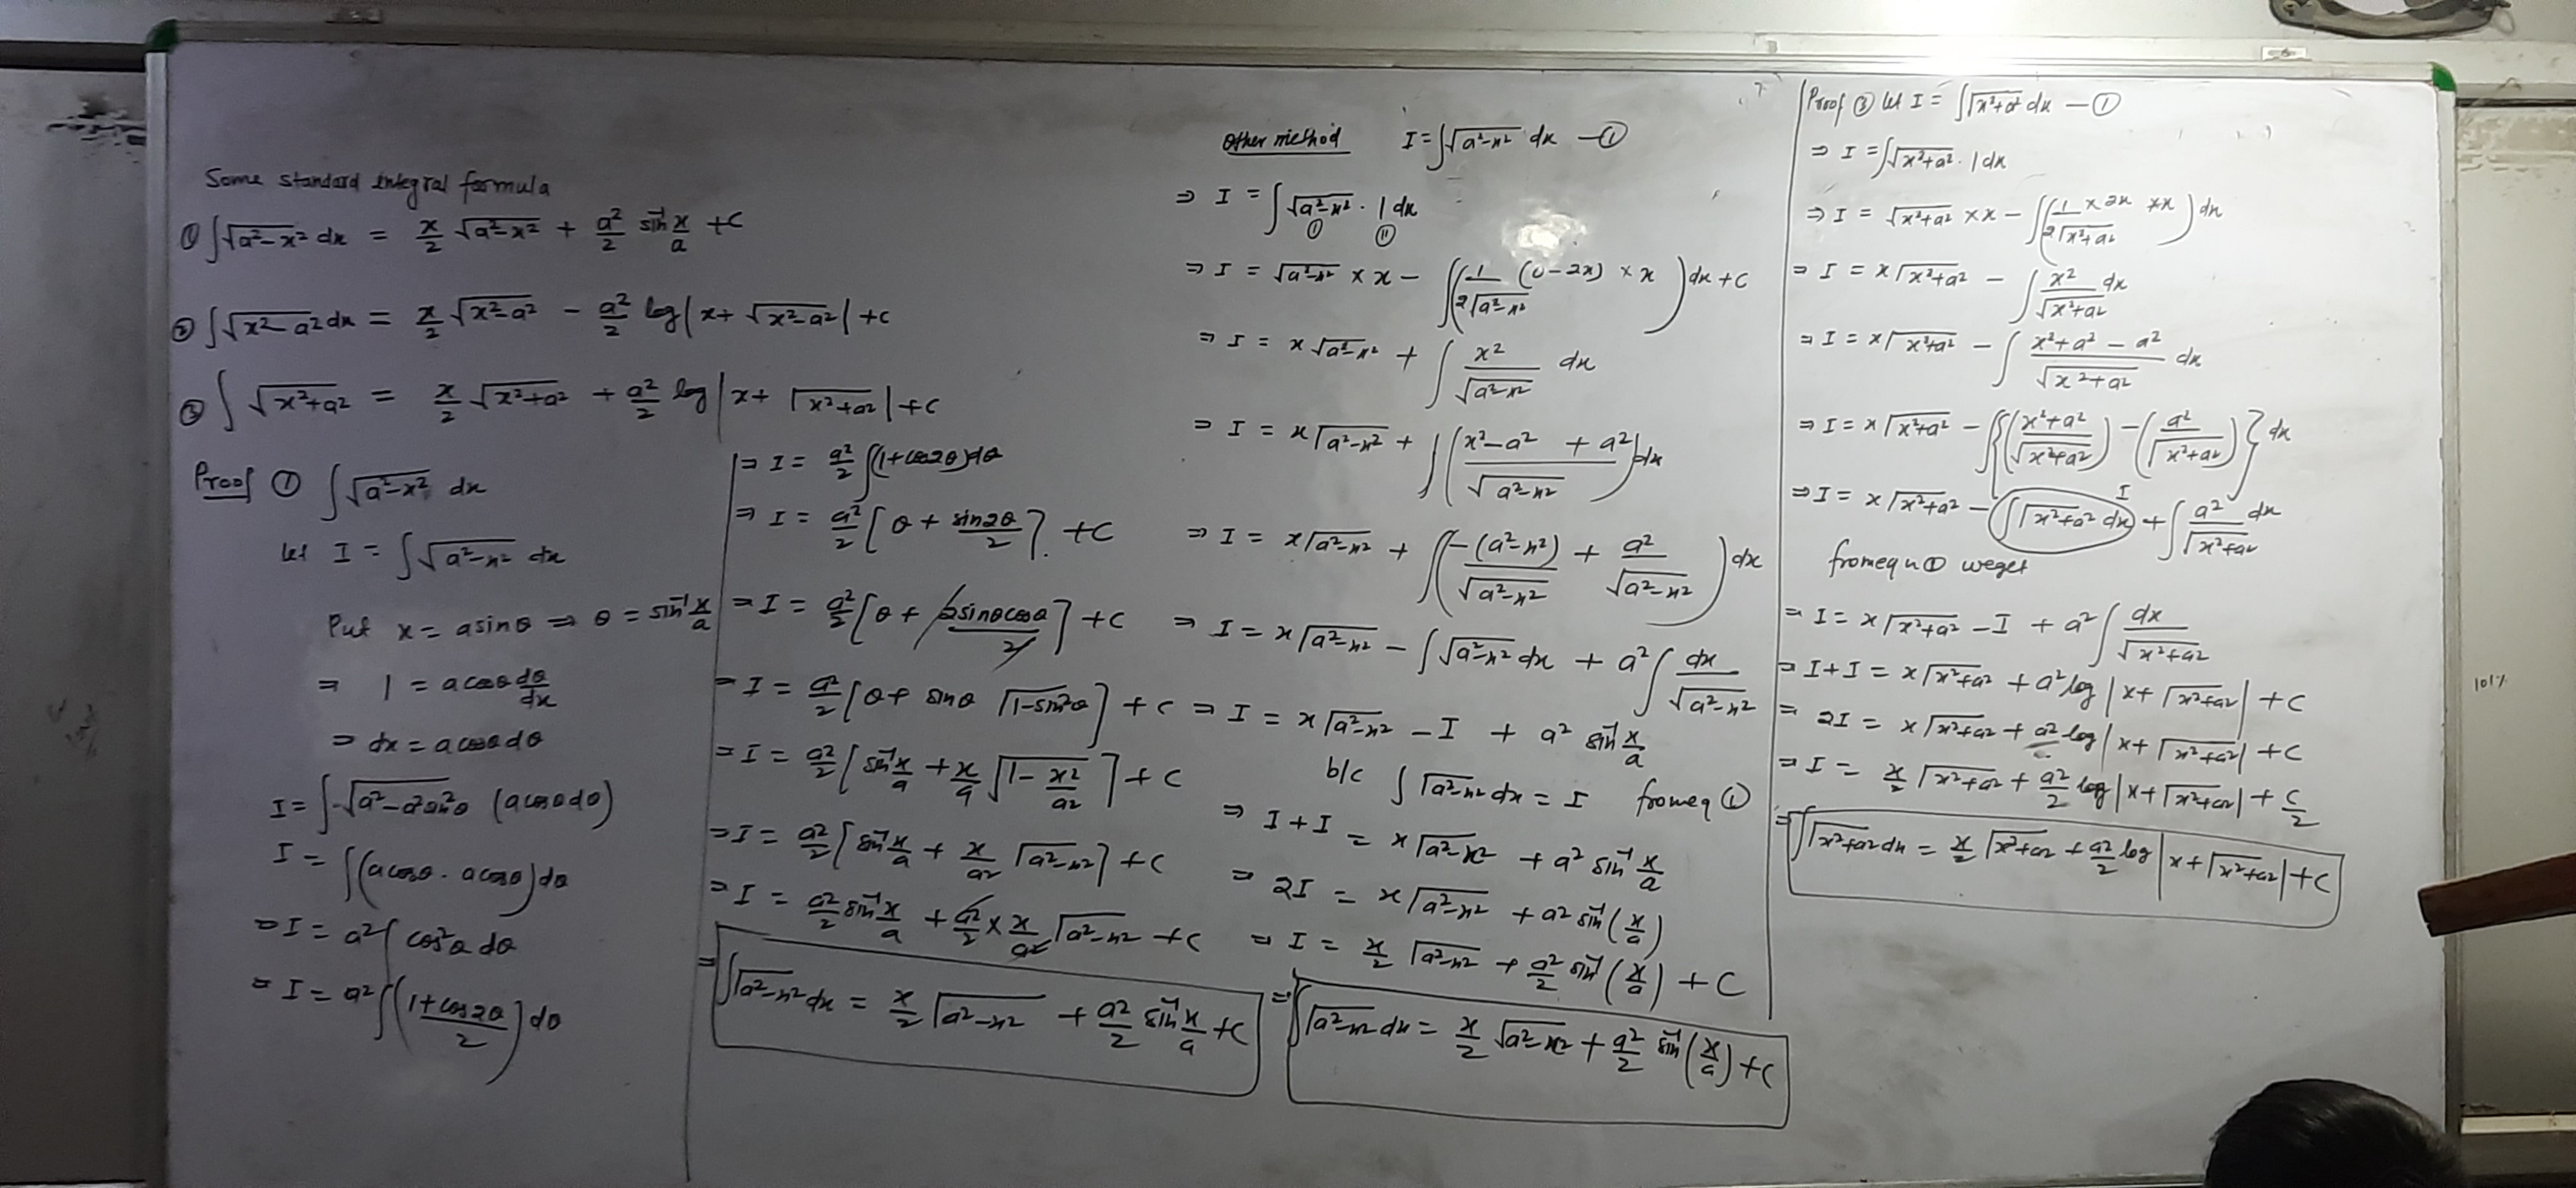 Some standard integral formula
① ∫√(a²-x²) dx = x/2 √(a²-x²) + a²/2 sin⁻¹ x/a + C
② ∫√(x²-a²) dx = x/2 √(x²-a²) - a²/2 log|x+√(x²-a²)| + C
③ ∫√(x²+a²) = x/2 √(x²+a²) + a²/2 log|x+√(x²+a²)| + C
Proof ① ∫√(a²-x²) dx
let I = ∫√(a²-x²) dx
Put x = a sinθ ⇒ θ = sin⁻¹ x/a
⇒ 1 = a cosθ dθ/dx
⇒ dx = a cosθ dθ
I = ∫√(a²-a²sin²θ) (a cosθ dθ)
I = ∫(a cosθ . a cosθ) dθ
⇒ I = a² ∫cos²θ dθ
⇒ I = a² ∫((1+cos2θ)/2) dθ
⇒ I = a²/2 ∫(1+cos2θ) dθ
⇒ I = a²/2 [θ + sin2θ/2] + C
⇒ I = a²/2 [θ + 2sinθcosθ/2] + C
⇒ I = a²/2 [θ + sinθ √(1-sin²θ)] + C
⇒ I = a²/2 [sin⁻¹ x/a + x/a √(1-x²/a²)] + C
⇒ I = a²/2 [sin⁻¹ x/a + x/a² √(a²-x²)] + C
⇒ I = a²/2 sin⁻¹ x/a + a²/2 × x/a² √(a²-x²) + C
⇒ ∫√(a²-x²) dx = x/2 √(a²-x²) + a²/2 sin⁻¹ x/a + C
Other method I = ∫√(a²-x²) dx — ①
⇒ I = ∫√(a²-x²) . 1 dx
Ⓘ Ⓘ︎Ⓘ
⇒ I = √(a²-x²) × x - ∫(1/(2√(a²-x²)) (0-2x) × x) dx + C
⇒ I = x√(a²-x²) + ∫ x²/√(a²-x²) dx
⇒ I = x√(a²-x²) + ∫((x²-a²+a²)/√(a²-x²)) dx
⇒ I = x√(a²-x²) + ∫(-(a²-x²)/√(a²-x²) + a²/√(a²-x²)) dx
⇒ I = x√(a²-x²) - ∫√(a²-x²) dx + a² ∫ dx/√(a²-x²)
⇒ I = x√(a²-x²) - I + a² sin⁻¹ x/a
b/c ∫√(a²-x²) dx = I from eq ①
⇒ I + I = x√(a²-x²) + a² sin⁻¹ x/a
⇒ 2I = x√(a²-x²) + a² sin⁻¹(x/a)
⇒ I = x/2 √(a²-x²) + a²/2 sin⁻¹(x/a) + C
⇒ ∫√(a²-x²) dx = x/2 √(a²-x²) + a²/2 sin⁻¹(x/a) + C
Proof ③ let I = ∫√(x²+a²) dx — ①
⇒ I = ∫√(x²+a²) . 1 dx
⇒ I = √(x²+a²) × x - ∫(1/(2√(x²+a²)) × 2x × x) dx
⇒ I = x√(x²+a²) - ∫ x²/√(x²+a²) dx
⇒ I = x√(x²+a²) - ∫ (x²+a²-a²)/√(x²+a²) dx
⇒ I = x√(x²+a²) - ∫{((x²+a²)/√(x²+a²)) - (a²/√(x²+a²))} dx
⇒ I = x√(x²+a²) - ∫√(x²+a²) dx + ∫ a²/√(x²+a²) dx
I
from eqn ① we get
⇒ I = x√(x²+a²) - I + a² ∫ dx/√(x²+a²)
⇒ I + I = x√(x²+a²) + a² log|x+√(x²+a²)| + C
⇒ 2I = x√(x²+a²) + a² log|x+√(x²+a²)| + C
⇒ I = x/2 √(x²+a²) + a²/2 log|x+√(x²+a²)| + C/2
⇒ ∫√(x²+a²) dx = x/2 √(x²+a²) + a²/2 log|x+√(x²+a²)| + C
101%